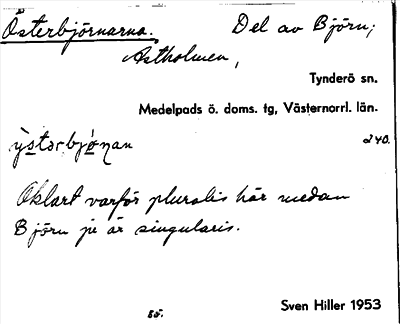 Österbjörnarna. Del av Björn;
Astholmen,
Tynderö sn.
Medelpads ö. doms. tg, Västernorrl. län.
240.
Oklart varför pluralis här medan
Björn ju är singularis.
Sven Hiller 1953